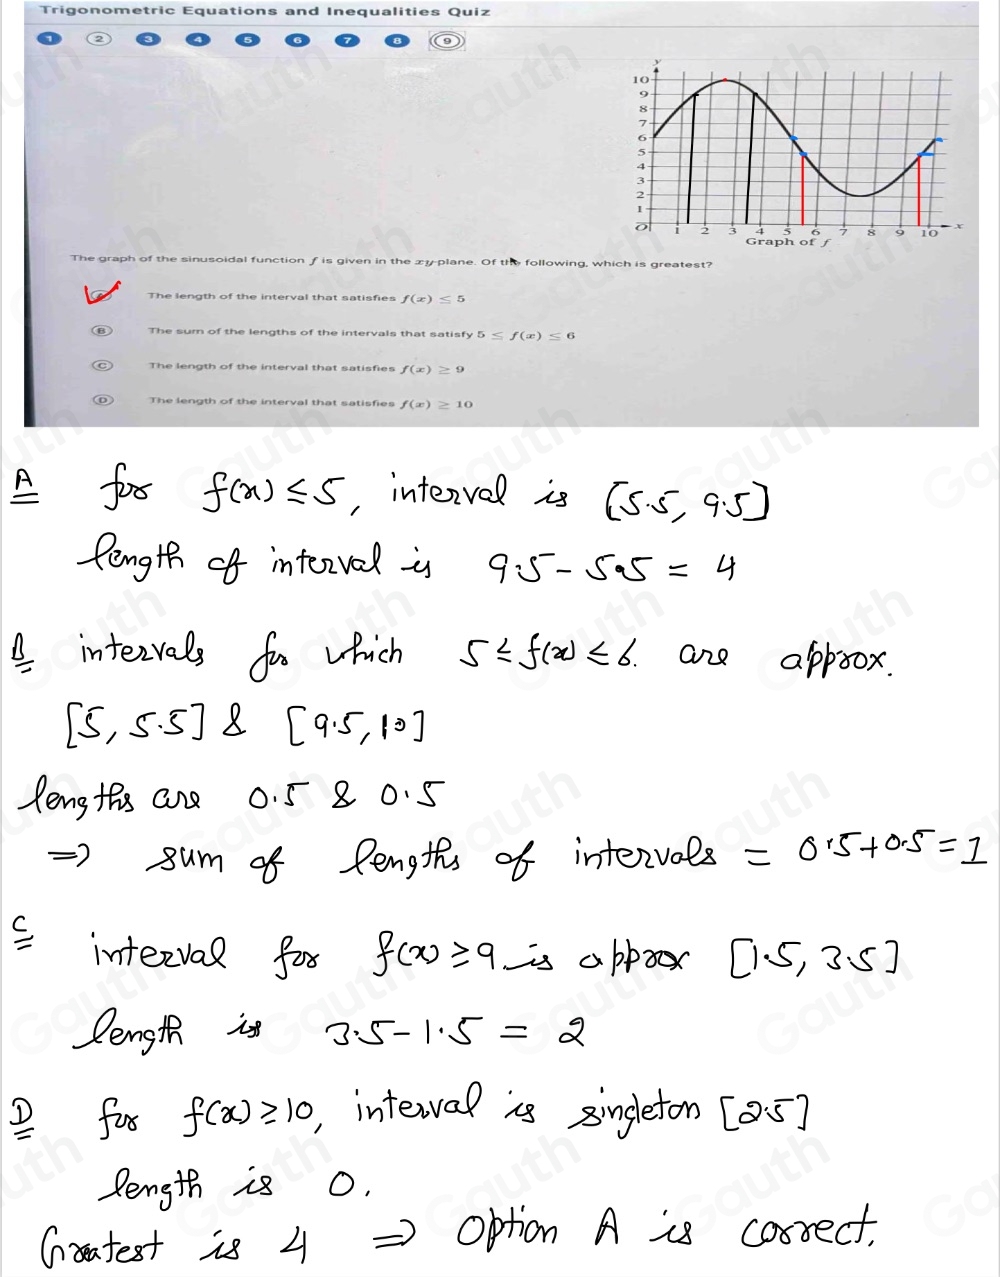 Trigonometric Equations and Inequalities Quiz
1 2 3 4 5 6 7 8 9
y
10
9
8
7
6
5
4
3
2
1
O 1 2 3 4 5 6 7 8 9 10 x
Graph of f
The graph of the sinusoidal function f is given in the xy-plane. Of the following, which is greatest?
The length of the interval that satisfies f(x) ≤ 5
B The sum of the lengths of the intervals that satisfy 5 ≤ f(x) ≤ 6
C The length of the interval that satisfies f(x) ≥ 9
D The length of the interval that satisfies f(x) ≥ 10
A for f(x) ≤ 5, interval is [5.5, 9.5]
length of interval is 9.5 - 5.5 = 4
B intervals for which 5 ≤ f(x) ≤ 6. are approx.
[5, 5.5] & [9.5, 10]
lengths are 0.5 & 0.5
⇒ sum of lengths of intervals = 0.5+0.5 = 1
C interval for f(x) ≥ 9 is approx [1.5, 3.5]
length is 3.5 - 1.5 = 2
D for f(x) ≥ 10, interval is singleton [2.5]
length is 0.
Greatest is 4 ⇒ Option A is correct.